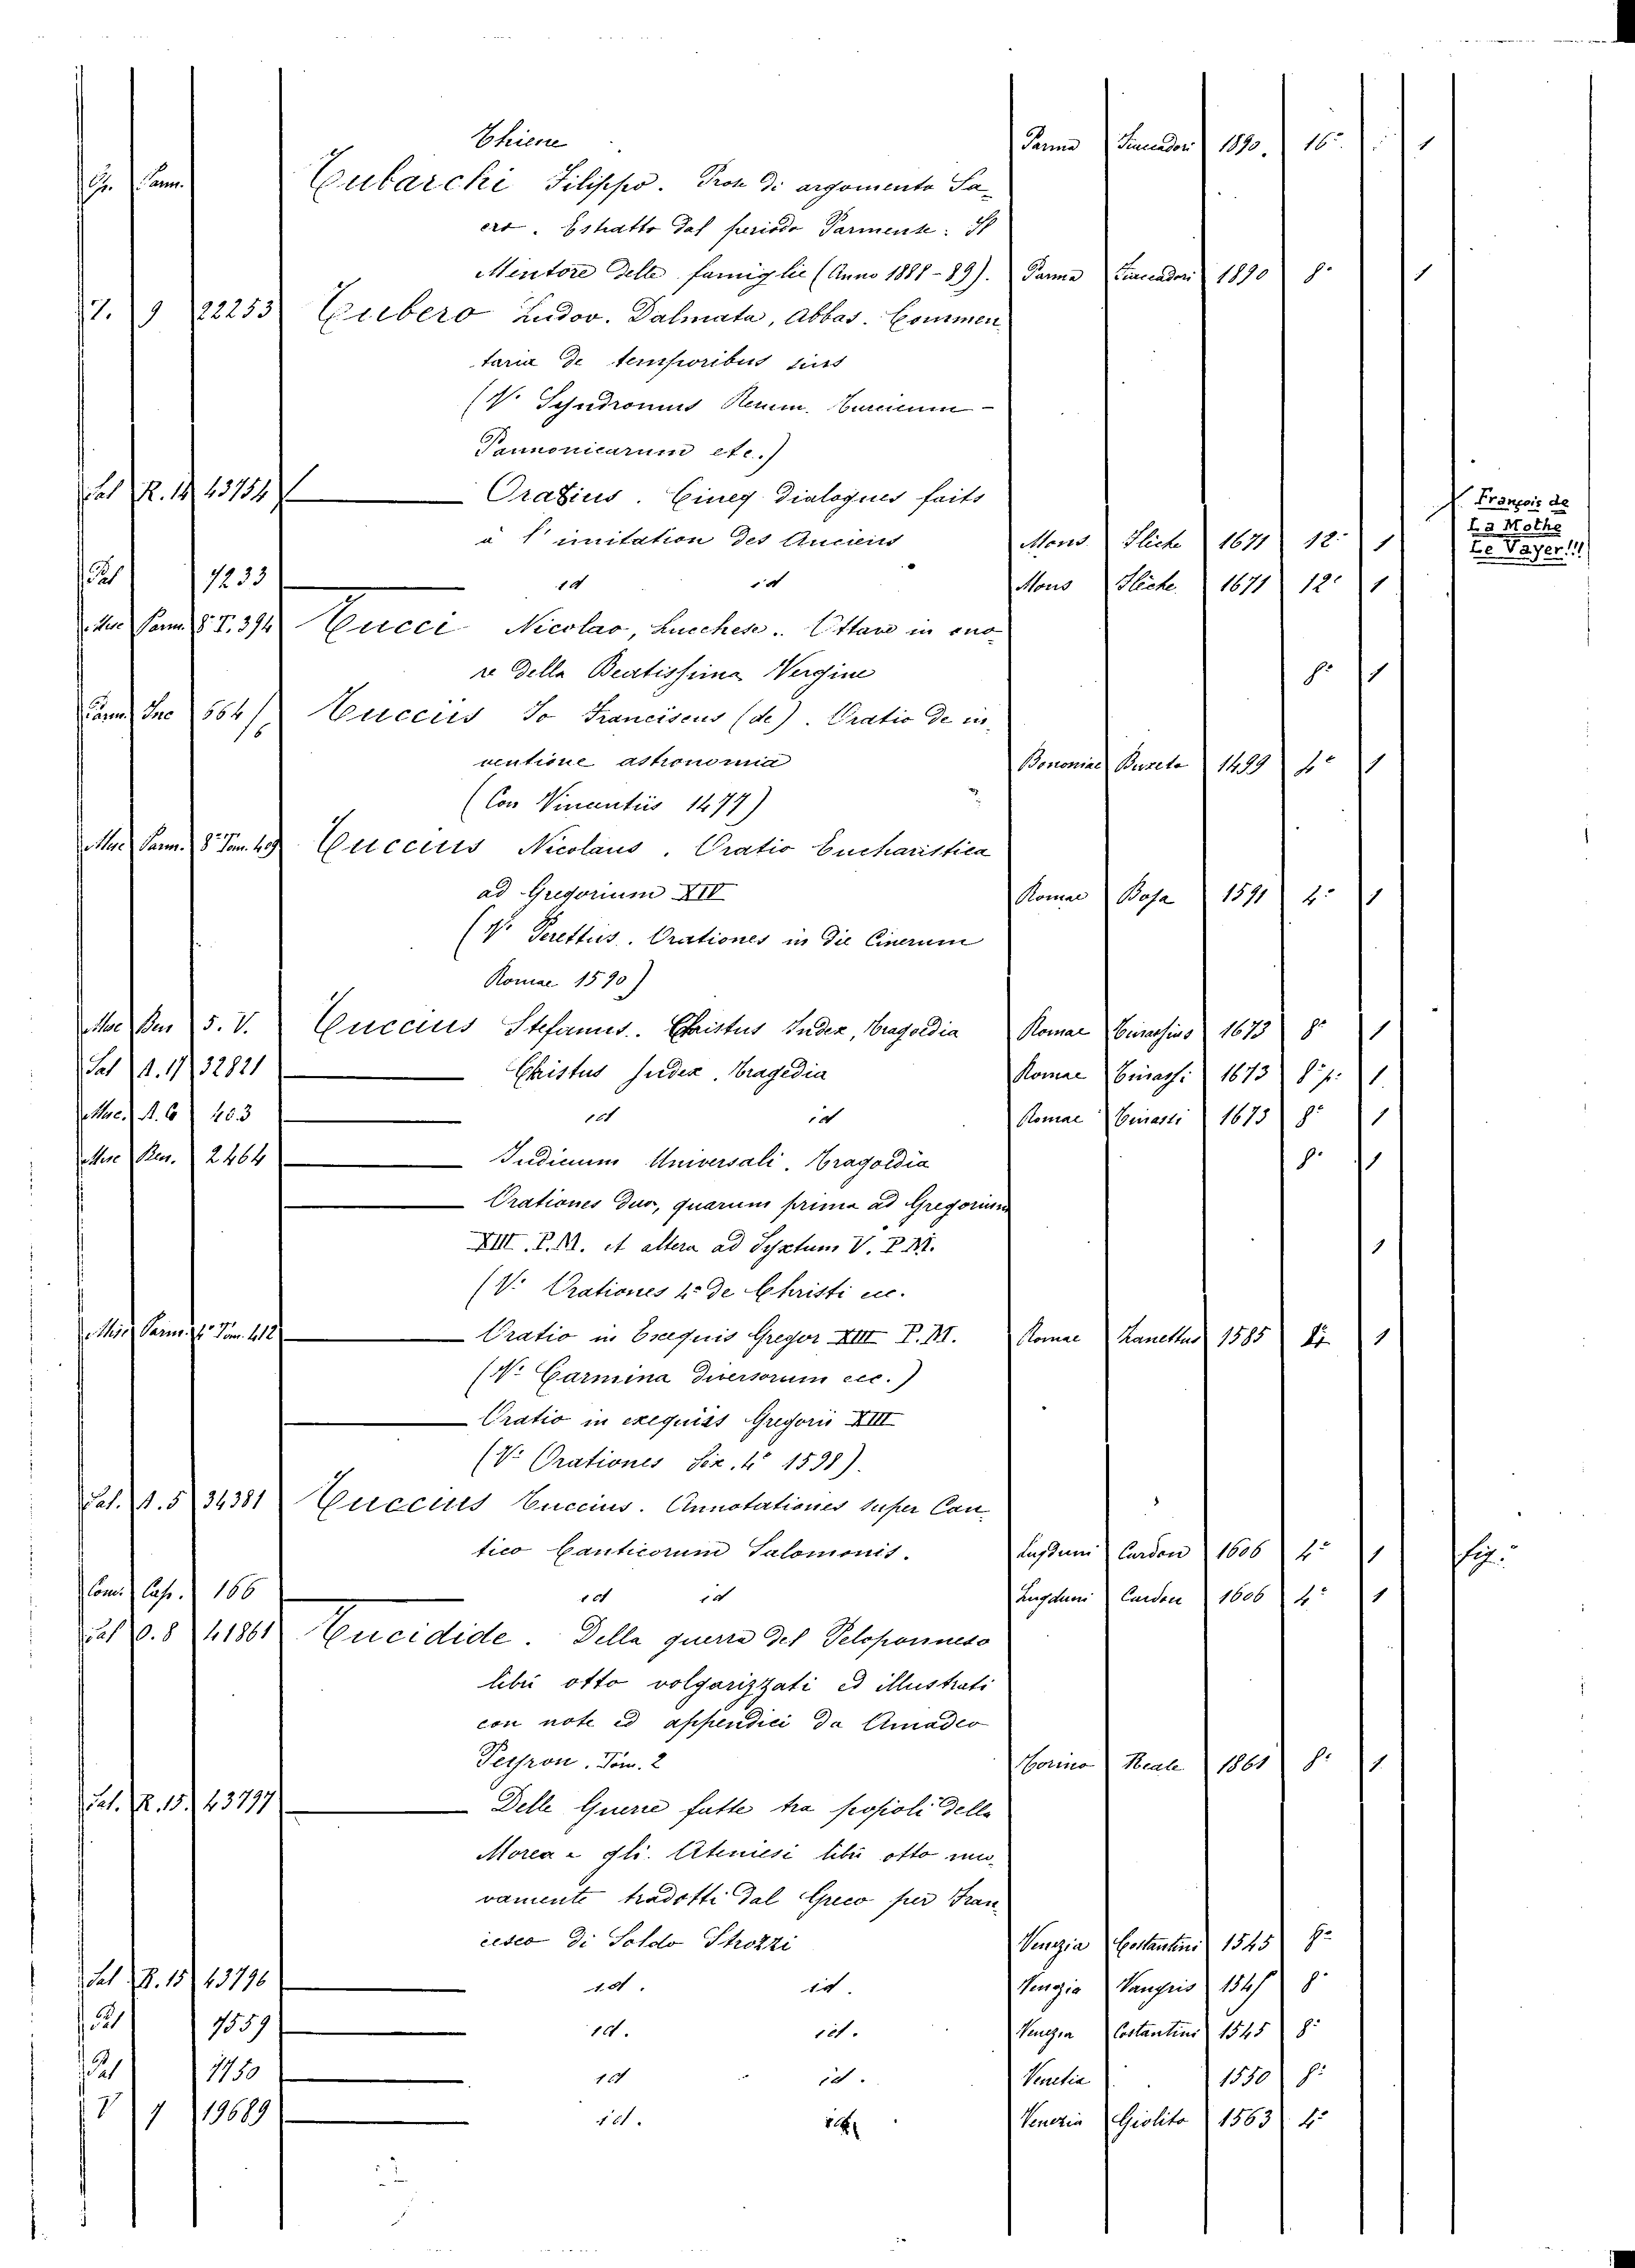 Parma 1890. 16° 1
Tubarchi Filippo. Prose di argomento Sa-
cro. Estratto dal periodo Parmense: Il
Mentore delle famiglie (Anno 1888-89). Parma 1890 8° 1
V. 9 22253 Tubero Ludov. Dalmata, Abbas. Commen
taria de temporibus suis
(V. Schwandtnerus Rerum
Pannonicarum etc.)
Pal R. 14 43754 Oratius. Cinq dialogues faits
à l'imitation des Anciens Mons 1671 12° 1
François de
La Mothe
Le Vayer!!!
Pal 7233 id id Mons 1671 12° 1
Misc Parm 8° T. 394 Tucci Nicolao, Lucchese. Ottave in ono-
re della Beatissima Vergine 8° 1
Parm Inc 564/ Tuccius Jo Franciscus (de). Oratio de in-
ventione astronomia Bononiae Bazaleri 1499 4° 1
(Con 1477)
Misc Parm. 8° Tom. 409 Tuccius Nicolaus. Oratio Eucharistica
ad Gregorium XIV Romae Basa 1591 4° 1
(V. Perettus. Orationes in die Cinerum
Romae 1590)
Misc 5. V. Tuccius Stefanus. Christus Index, Tragoedia Romae 1673 8° 1
Pal A. 17 32821 Christus Judex. Tragedia Romae 1673 8° p. 1
Misc. A. 6 403 id id Romae 1673 8° 1
Misc 2464 Judicium Universali. Tragoedia 8° 1
Orationes duo, quarum prima ad Gregorium
XIII. P. M. et altera ad Syxtum V. P. M. 1
(V. Orationes 4° de Christi ec.
Misc Parm. 4° Tom. 412 Oratio in Exequiis Gregor XIII P. M. Romae Zanettus 1585 4° 1
(V. Carmina diversorum ecc.)
Oratio in exequiis Gregorii XIII
(V. Orationes Sex. 4° 1598).
Pal. A. 5 34381 Tuccius Tuccius. Annotationes super Can-
tico Canticorum Salomonis. Lugduni Cardon 1606 4° 1 fig.
Com. Cass. 166 id id Lugduni Cardon 1606 4° 1
Pal O. 8 41861 Tucidide. Della guerra del Peloponneso
libri otto volgarizzati ed illustrati
con note ed appendici da Amadeo
Peyron. Tom. 2 Torino Reale 1861 8° 1
Pal. R. 15. 43797 Delle Guerre fatte tra popoli della
Morea e gli Ateniesi libri otto nuo-
vamente tradotti dal Greco per Fran-
cesco di Soldo Strozzi Venezia Costantini 1545 8°
Pal R. 15 43796 id. id. Venezia Vaugris 1545 8°
Pal 7559 id. id. Venezia Costantini 1545 8°
Pal 1750 id id. Venetia 1550 8°
V 7 19689 id. id. Venezia Giolito 1563 4°